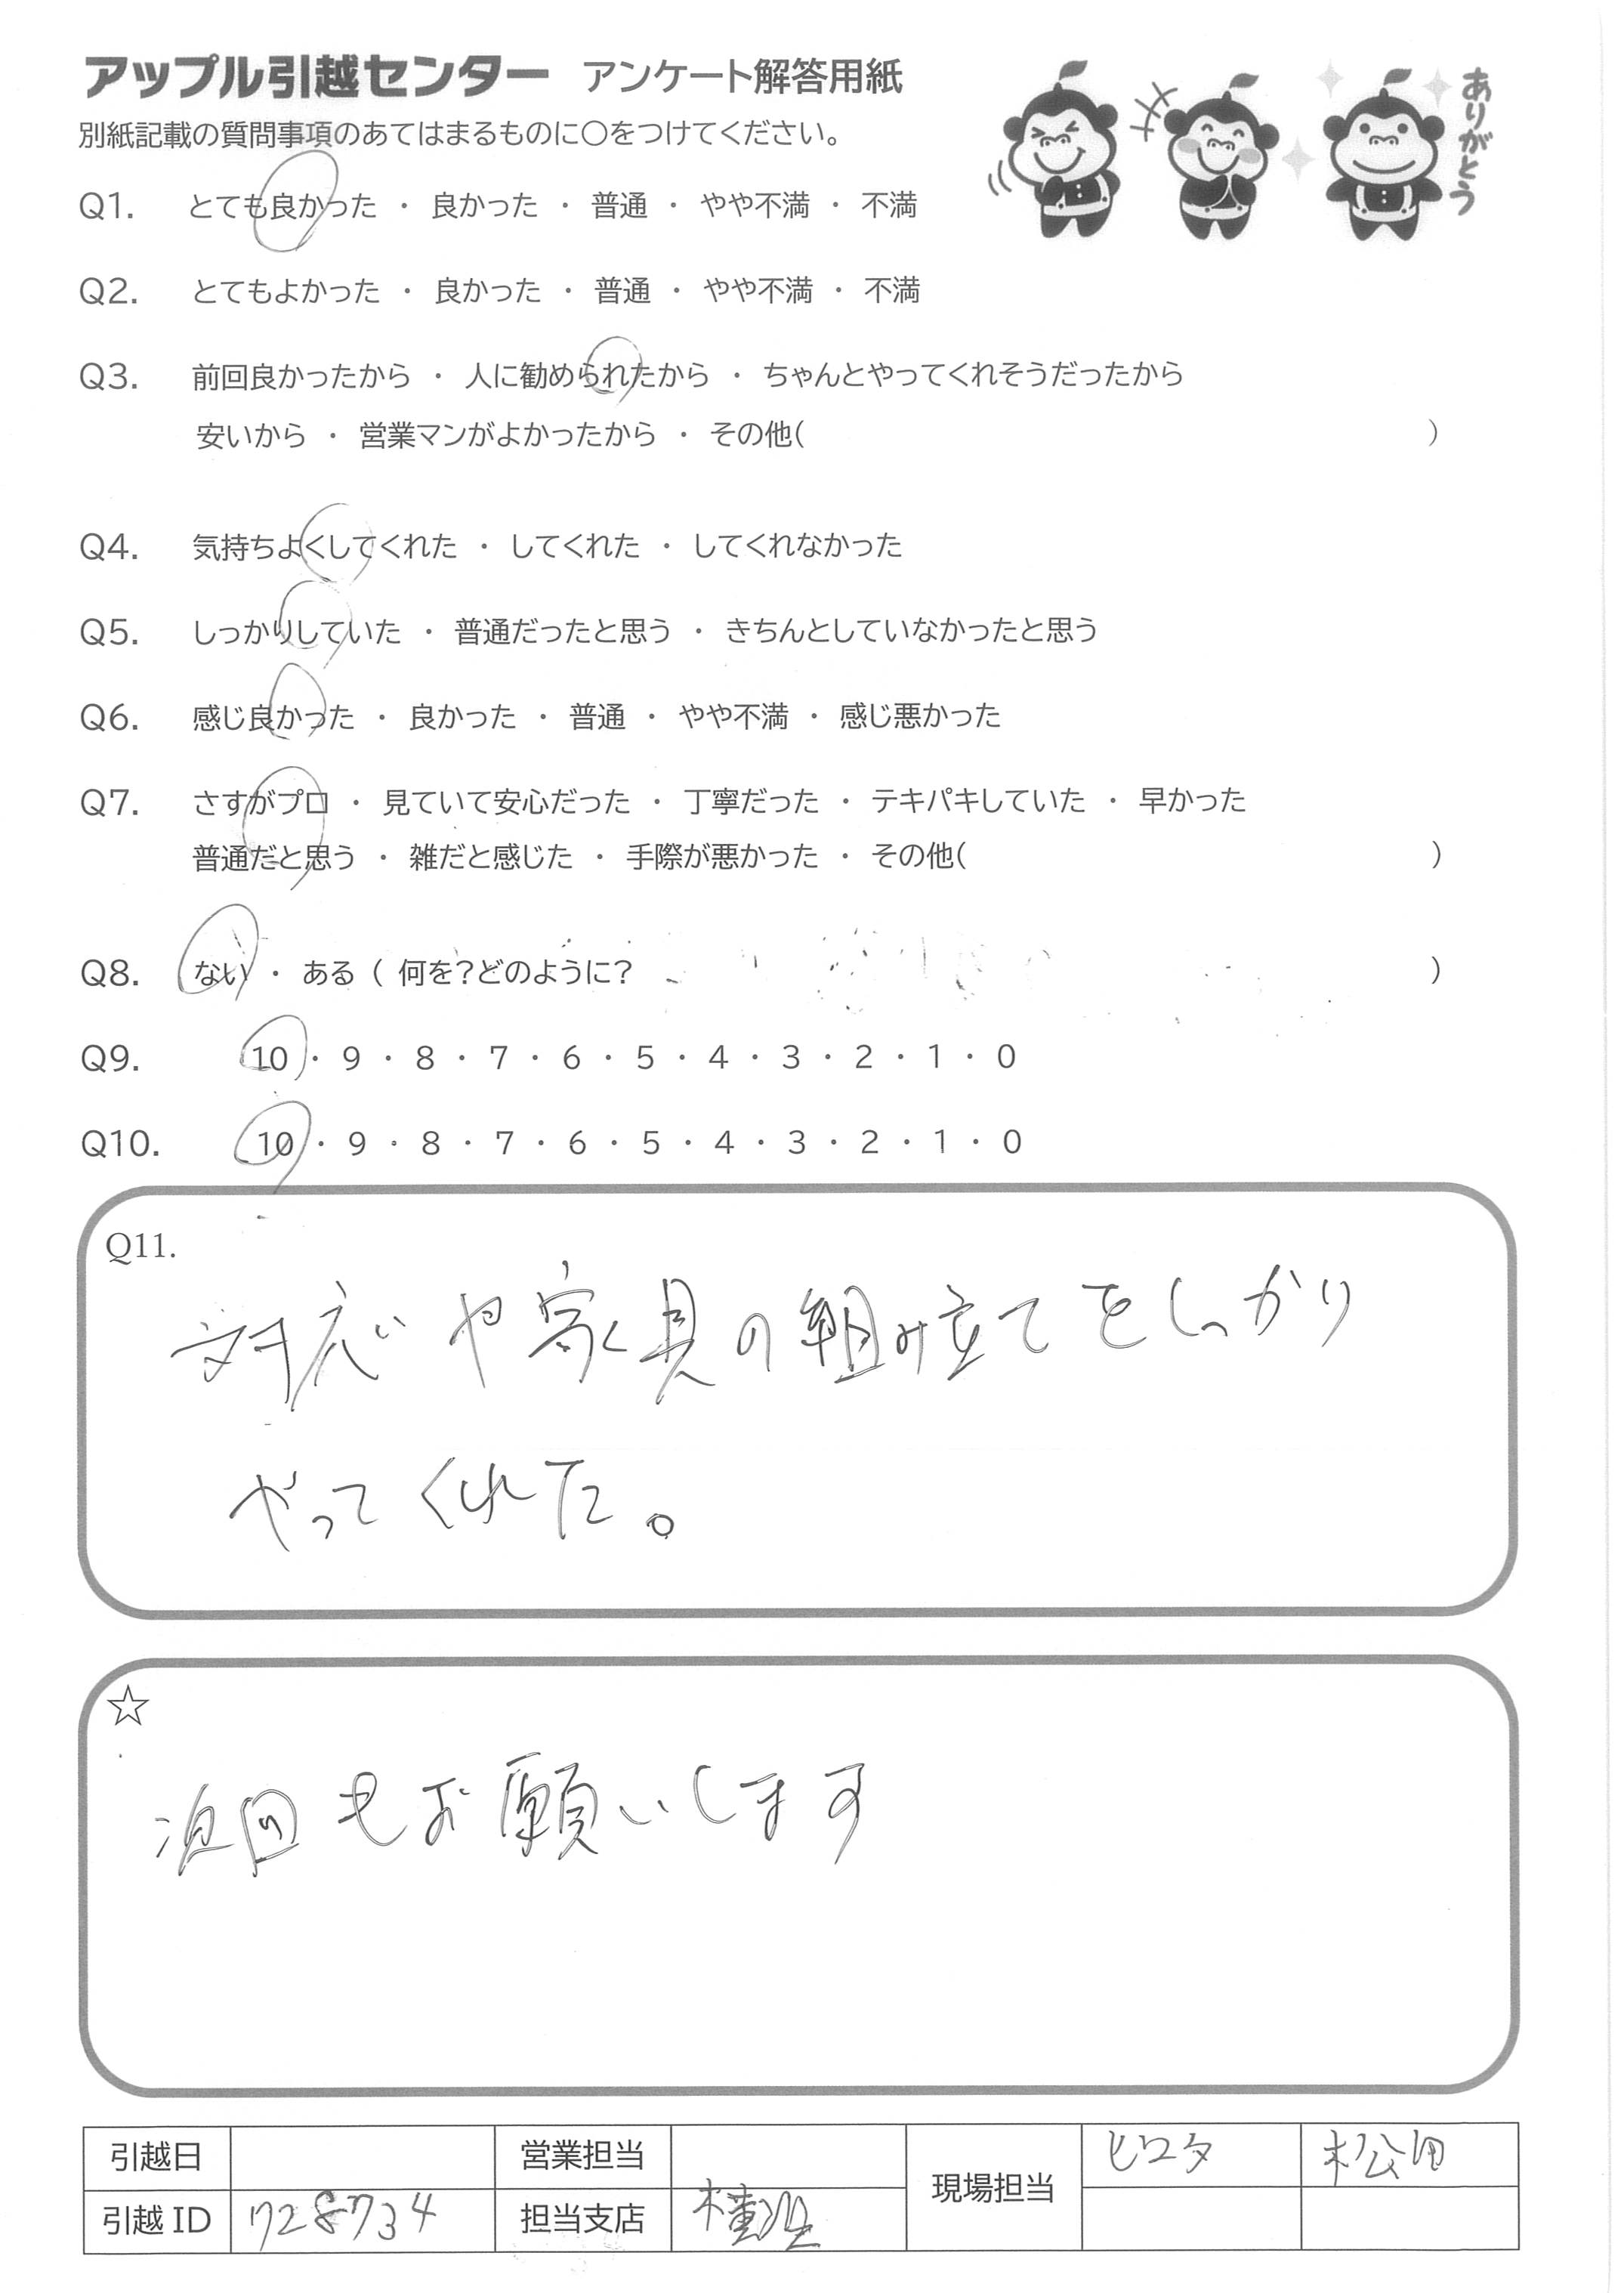 アップル引越センター アンケート解答用紙
別紙記載の質問事項のあてはまるものに○をつけてください。
ありがとう
Q1. とても良かった ・ 良かった ・ 普通 ・ やや不満 ・ 不満
Q2. とてもよかった ・ 良かった ・ 普通 ・ やや不満 ・ 不満
Q3. 前回良かったから ・ 人に勧められたから ・ ちゃんとやってくれそうだったから
安いから ・ 営業マンがよかったから ・ その他( )
Q4. 気持ちよくしてくれた ・ してくれた ・ してくれなかった
Q5. しっかりしていた ・ 普通だったと思う ・ きちんとしていなかったと思う
Q6. 感じ良かった ・ 良かった ・ 普通 ・ やや不満 ・ 感じ悪かった
Q7. さすがプロ ・ 見ていて安心だった ・ 丁寧だった ・ テキパキしていた ・ 早かった
普通だと思う ・ 雑だと感じた ・ 手際が悪かった ・ その他( )
Q8. ない ・ ある ( 何を?どのように? )
Q9. 10 ・ 9 ・ 8 ・ 7 ・ 6 ・ 5 ・ 4 ・ 3 ・ 2 ・ 1 ・ 0
Q10. 10 ・ 9 ・ 8 ・ 7 ・ 6 ・ 5 ・ 4 ・ 3 ・ 2 ・ 1 ・ 0
Q11.
対応や家具の組み立てをしっかり
やってくれた。
☆
次回もお願いします
引越日 営業担当 現場担当 ヒロタ 松田
引越ID 728734 担当支店 横浜